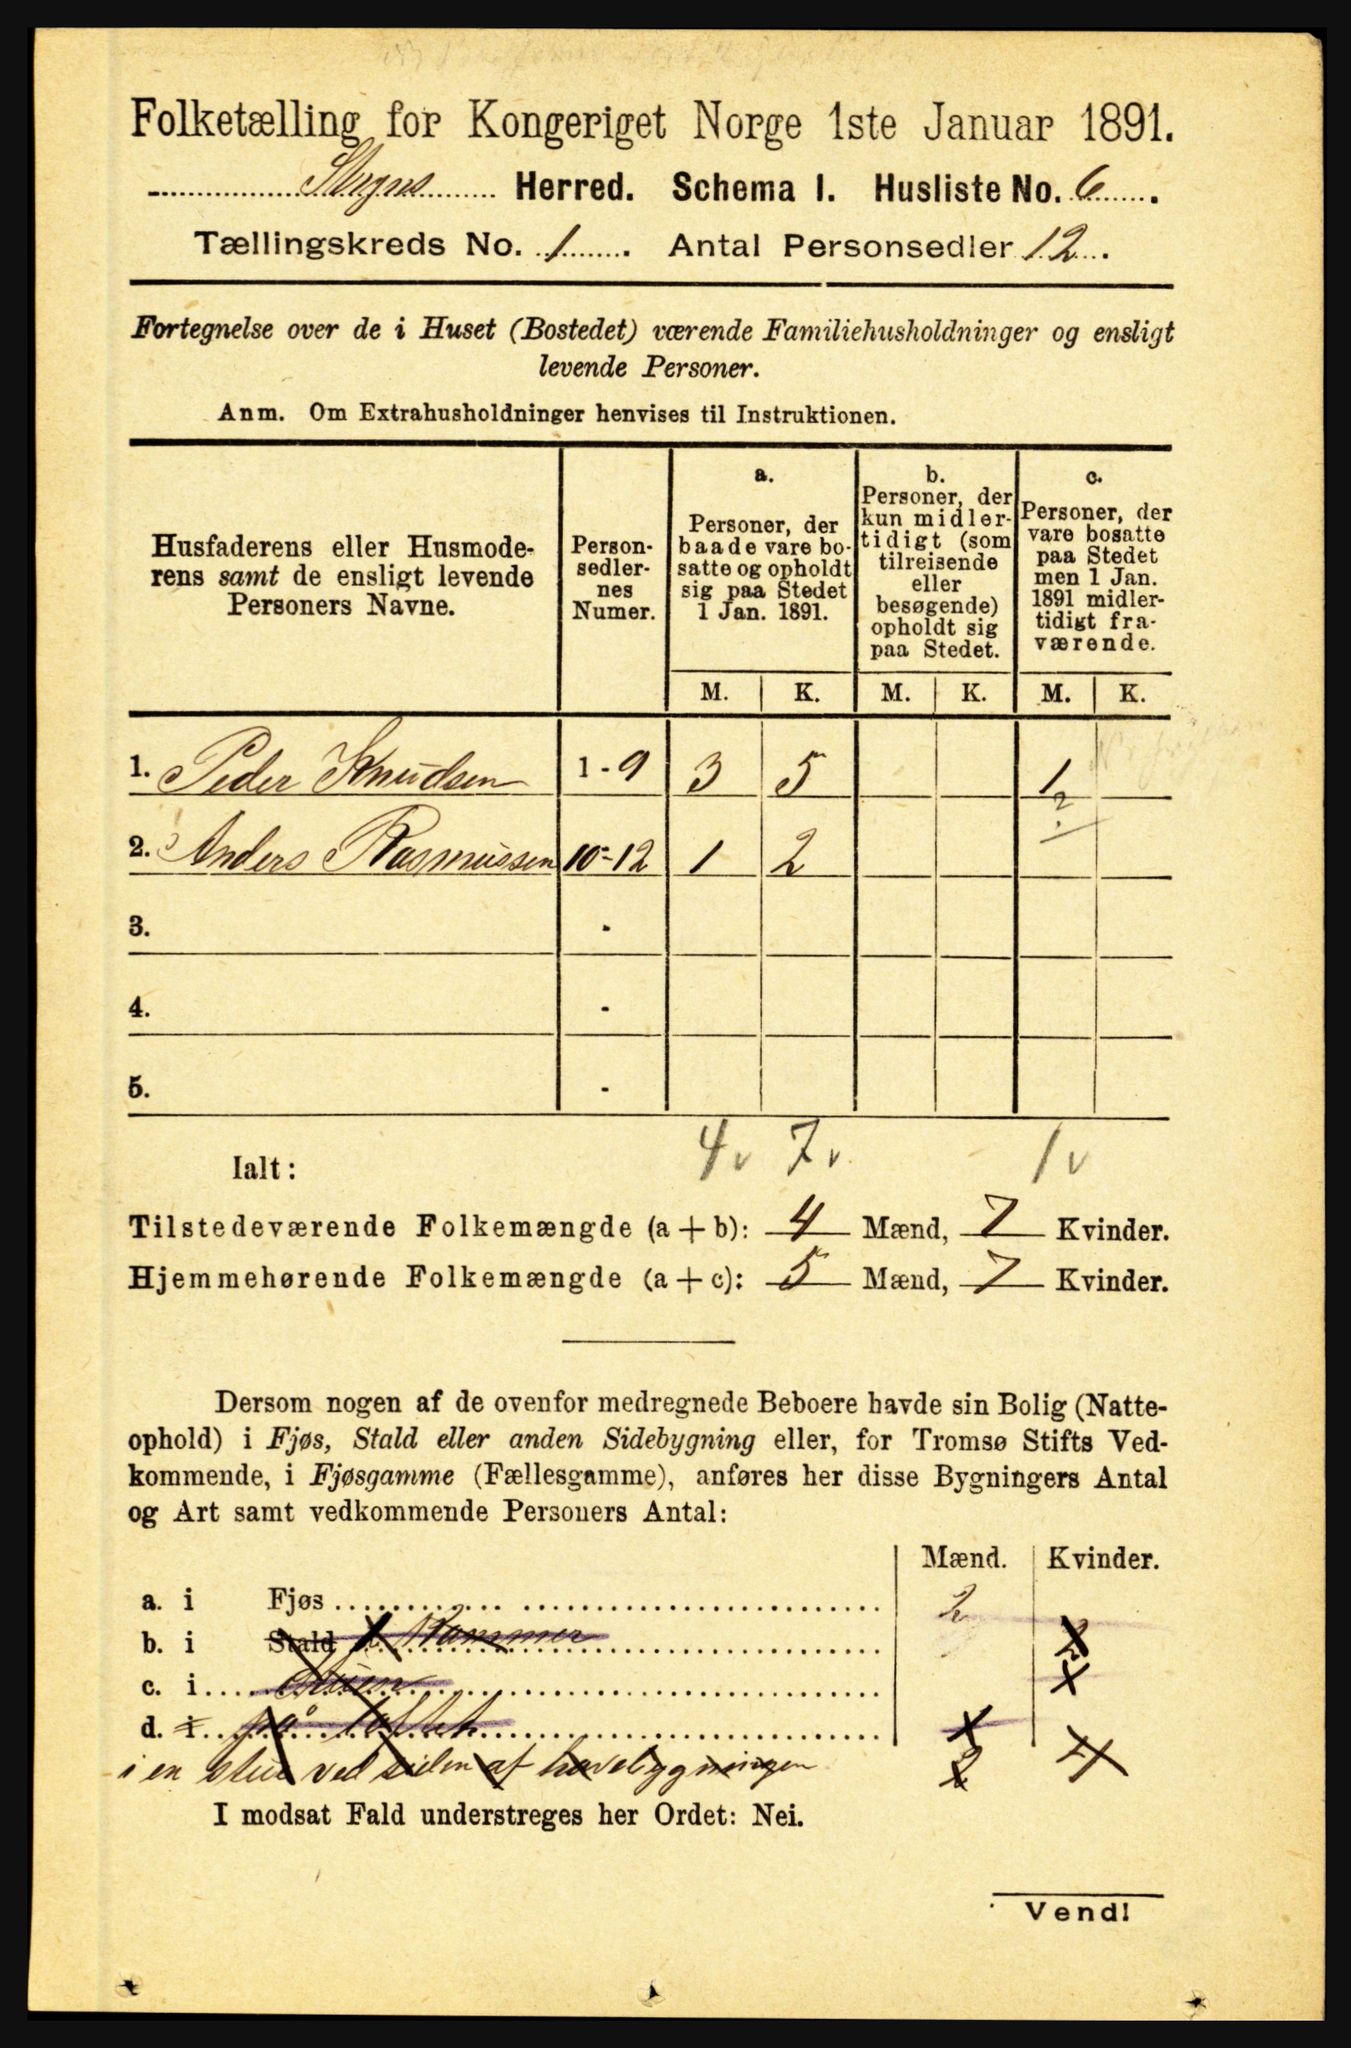 Folketælling for Kongeriget Norge 1ste Januar 1891.
Herred. Schema I. Husliste No. 6.
Tællingskreds No. 1. Antal Personsedler 12.
Fortegnelse over de i Huset (Bostedet) værende Familiehusholdninger og ensligt
levende Personer.
Anm. Om Extrahusholdninger henvises til Instruktionen.
Husfaderens eller Husmode-
rens samt de ensligt levende
Personers Navne.
Person-
sedler-
nes
Numer.
a.
Personer, der
baade vare bo-
satte og opholdt
sig paa Stedet
1 Jan. 1891.
b.
Personer, der
kun midler-
tidigt (som
tilreisende
eller
besøgende)
opholdt sig
paa Stedet.
c.
Personer, der
vare bosatte
paa Stedet
men 1 Jan.
1891 midler-
tidigt fra-
værende.
M. K. M. K. M. K.
1. Peder Knudsen 1-9 3 5 1
?
2. Anders Rasmussen 10-12 1 2
3. -
4. -
5. -
4 v 7 v 1 v
Ialt:
Tilstedeværende Folkemængde (a + b): 4 Mænd, 7 Kvinder.
Hjemmehørende Folkemængde (a + c): 5 Mænd, 7 Kvinder.
Dersom nogen af de ovenfor medregnede Beboere havde sin Bolig (Natte-
ophold) i Fjøs, Stald eller anden Sidebygning eller, for Tromsø Stifts Ved-
kommende, i Fjøsgamme (Fællesgamme), anføres her disse Bygningers Antal
og Art samt vedkommende Personers Antal:
Mænd. Kvinder.
a. i Fjøs 2
b. i Stald Kammer
c. i
d. i på loftet
i en stue ved siden af 2 4
I modsat Fald understreges her Ordet: Nei.
Vend!